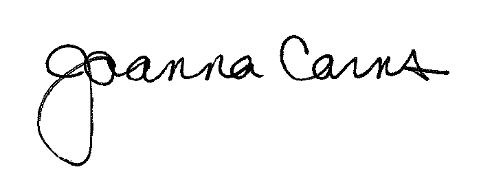 Joanna Carns